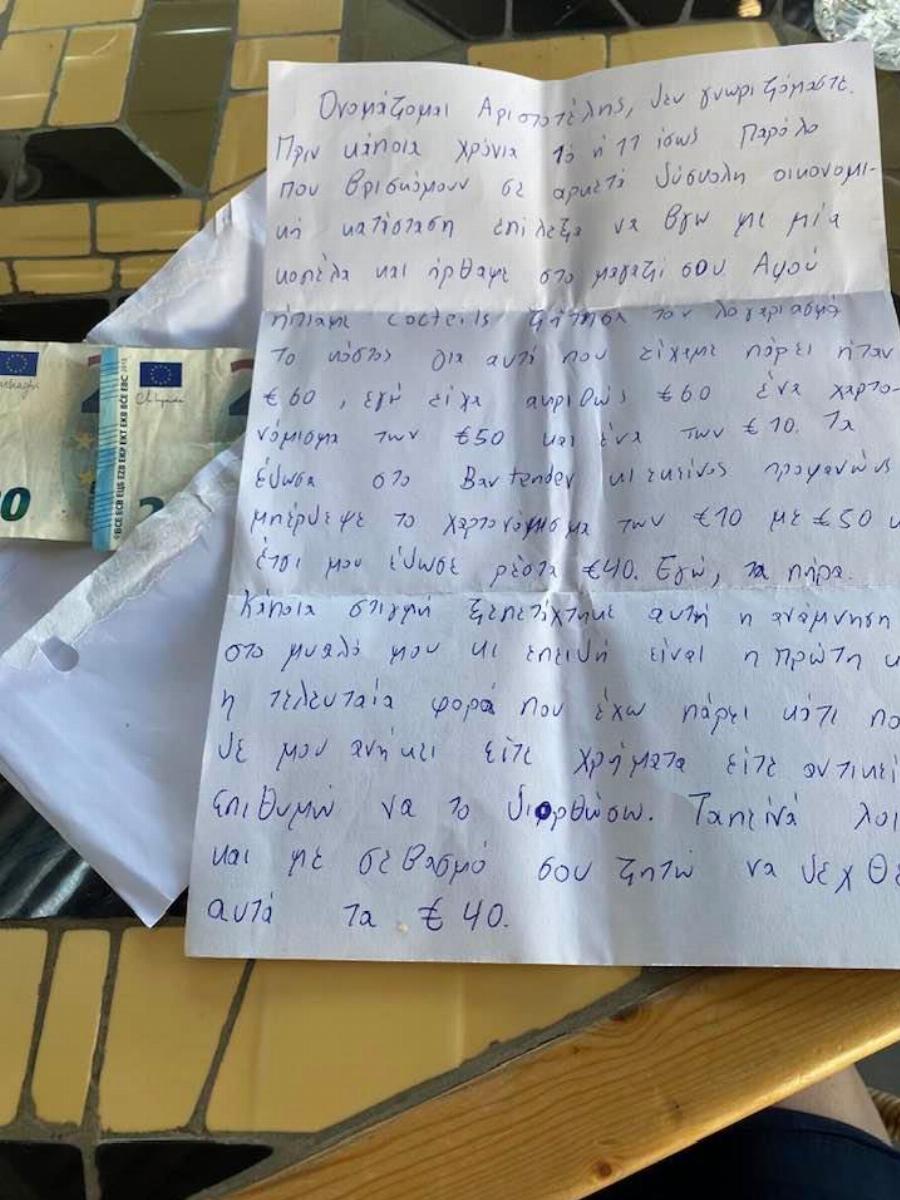 Ονομάζομαι Αριστοτέλης, δεν γνωριζόμαστε.
Πριν κάποια χρόνια 10 ή 11 ίσως Παρόλο
που βρισκόμουν σε αρκετά δύσκολη οικονομι-
κή κατάσταση επίλεξα να βγω με μία
κοπέλα και ήρθαμε στο μαγαζί σου. Αφού
ήπιαμε cocteils ζήτησα τον λογαριασμό
το κόστος για αυτά που είχαμε πάρει ήταν
€60, εγώ είχα ακριβώς €60 ένα χαρτο-
νόμισμα των €50 και ένα των €10. Τα
έδωσα στο Bartender κι εκείνος προφανώς
μπέρδεψε το χαρτονόμισμα των €10 με €50 κ
έτσι μου έδωσε ρέστα €40. Εγώ, τα πήρα.
Κάποια στιγμή ξεπετάχτηκε αυτή η ανάμνηση
στο μυαλό μου κι επειδή είναι η πρώτη κ
η τελευταία φορά που έχω πάρει κάτι πο
δε μου ανήκει είτε χρήματα είτε αντικεί
επιθυμώ να το διορθώσω. Ταπεινά λοι
και με σεβασμό σου ζητώ να δεχθε
αυτά τα €40.
BCE ECB ЕЦБ EZB EKP EKT EKB BĊE EBC 2015
20